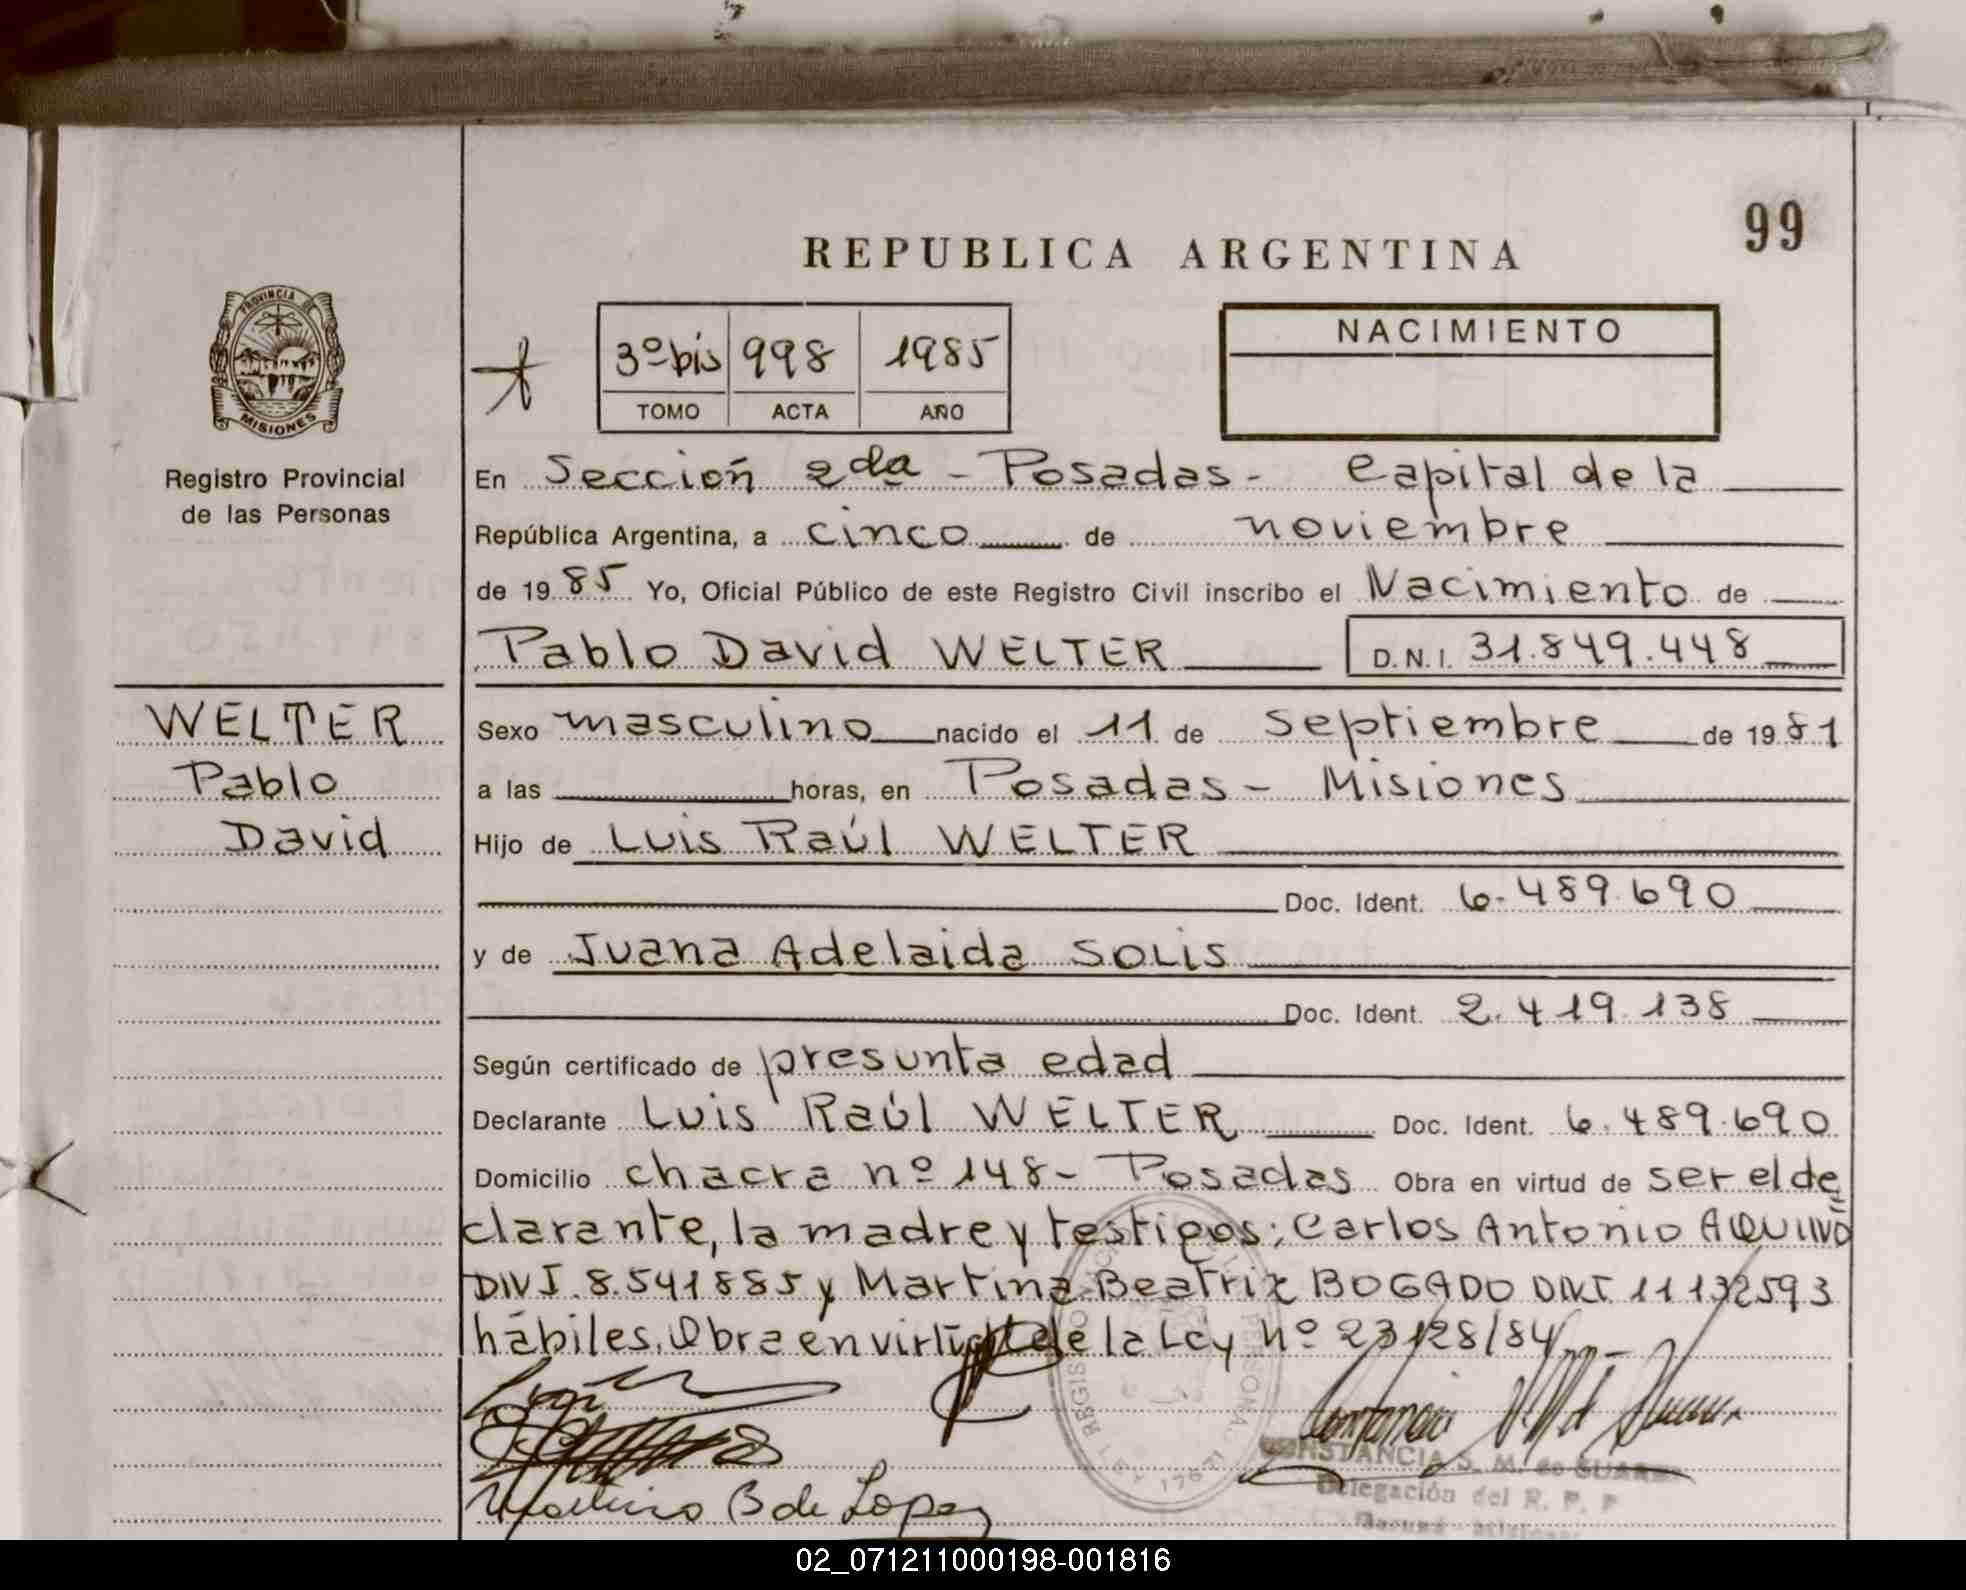 99
REPUBLICA ARGENTINA
PROVINCIA DE
MISIONES
3º bis 998 1985
TOMO ACTA AÑO
NACIMIENTO
Registro Provincial
de las Personas
En Sección 2da - Posadas - Capital de la
República Argentina, a cinco de noviembre
de 1985 Yo, Oficial Público de este Registro Civil inscribo el Nacimiento de
Pablo David WELTER D.N.I. 31.849.448
WELTER
Pablo
David
Sexo masculino nacido el 11 de septiembre de 1981
a las horas, en Posadas - Misiones
Hijo de Luis Raúl WELTER
Doc. Ident. 6.489.690
y de Juana Adelaida SOLIS
Doc. Ident. 2.419.138
Según certificado de presunta edad
Declarante Luis Raúl WELTER Doc. Ident. 6.489.690
Domicilio chacra nº 148 - Posadas Obra en virtud de ser el de
clarante, la madre y testigos: Carlos Antonio AQUINO
DNI. 8.541885 y Martina Beatriz BOGADO DNI 11132593
hábiles. Obra en virtud de la Ley nº 23128/84
B de Lopez
CONSTANCIA S. M. de SUAREZ
Delegación del R. P. P
02_071211000198-001816